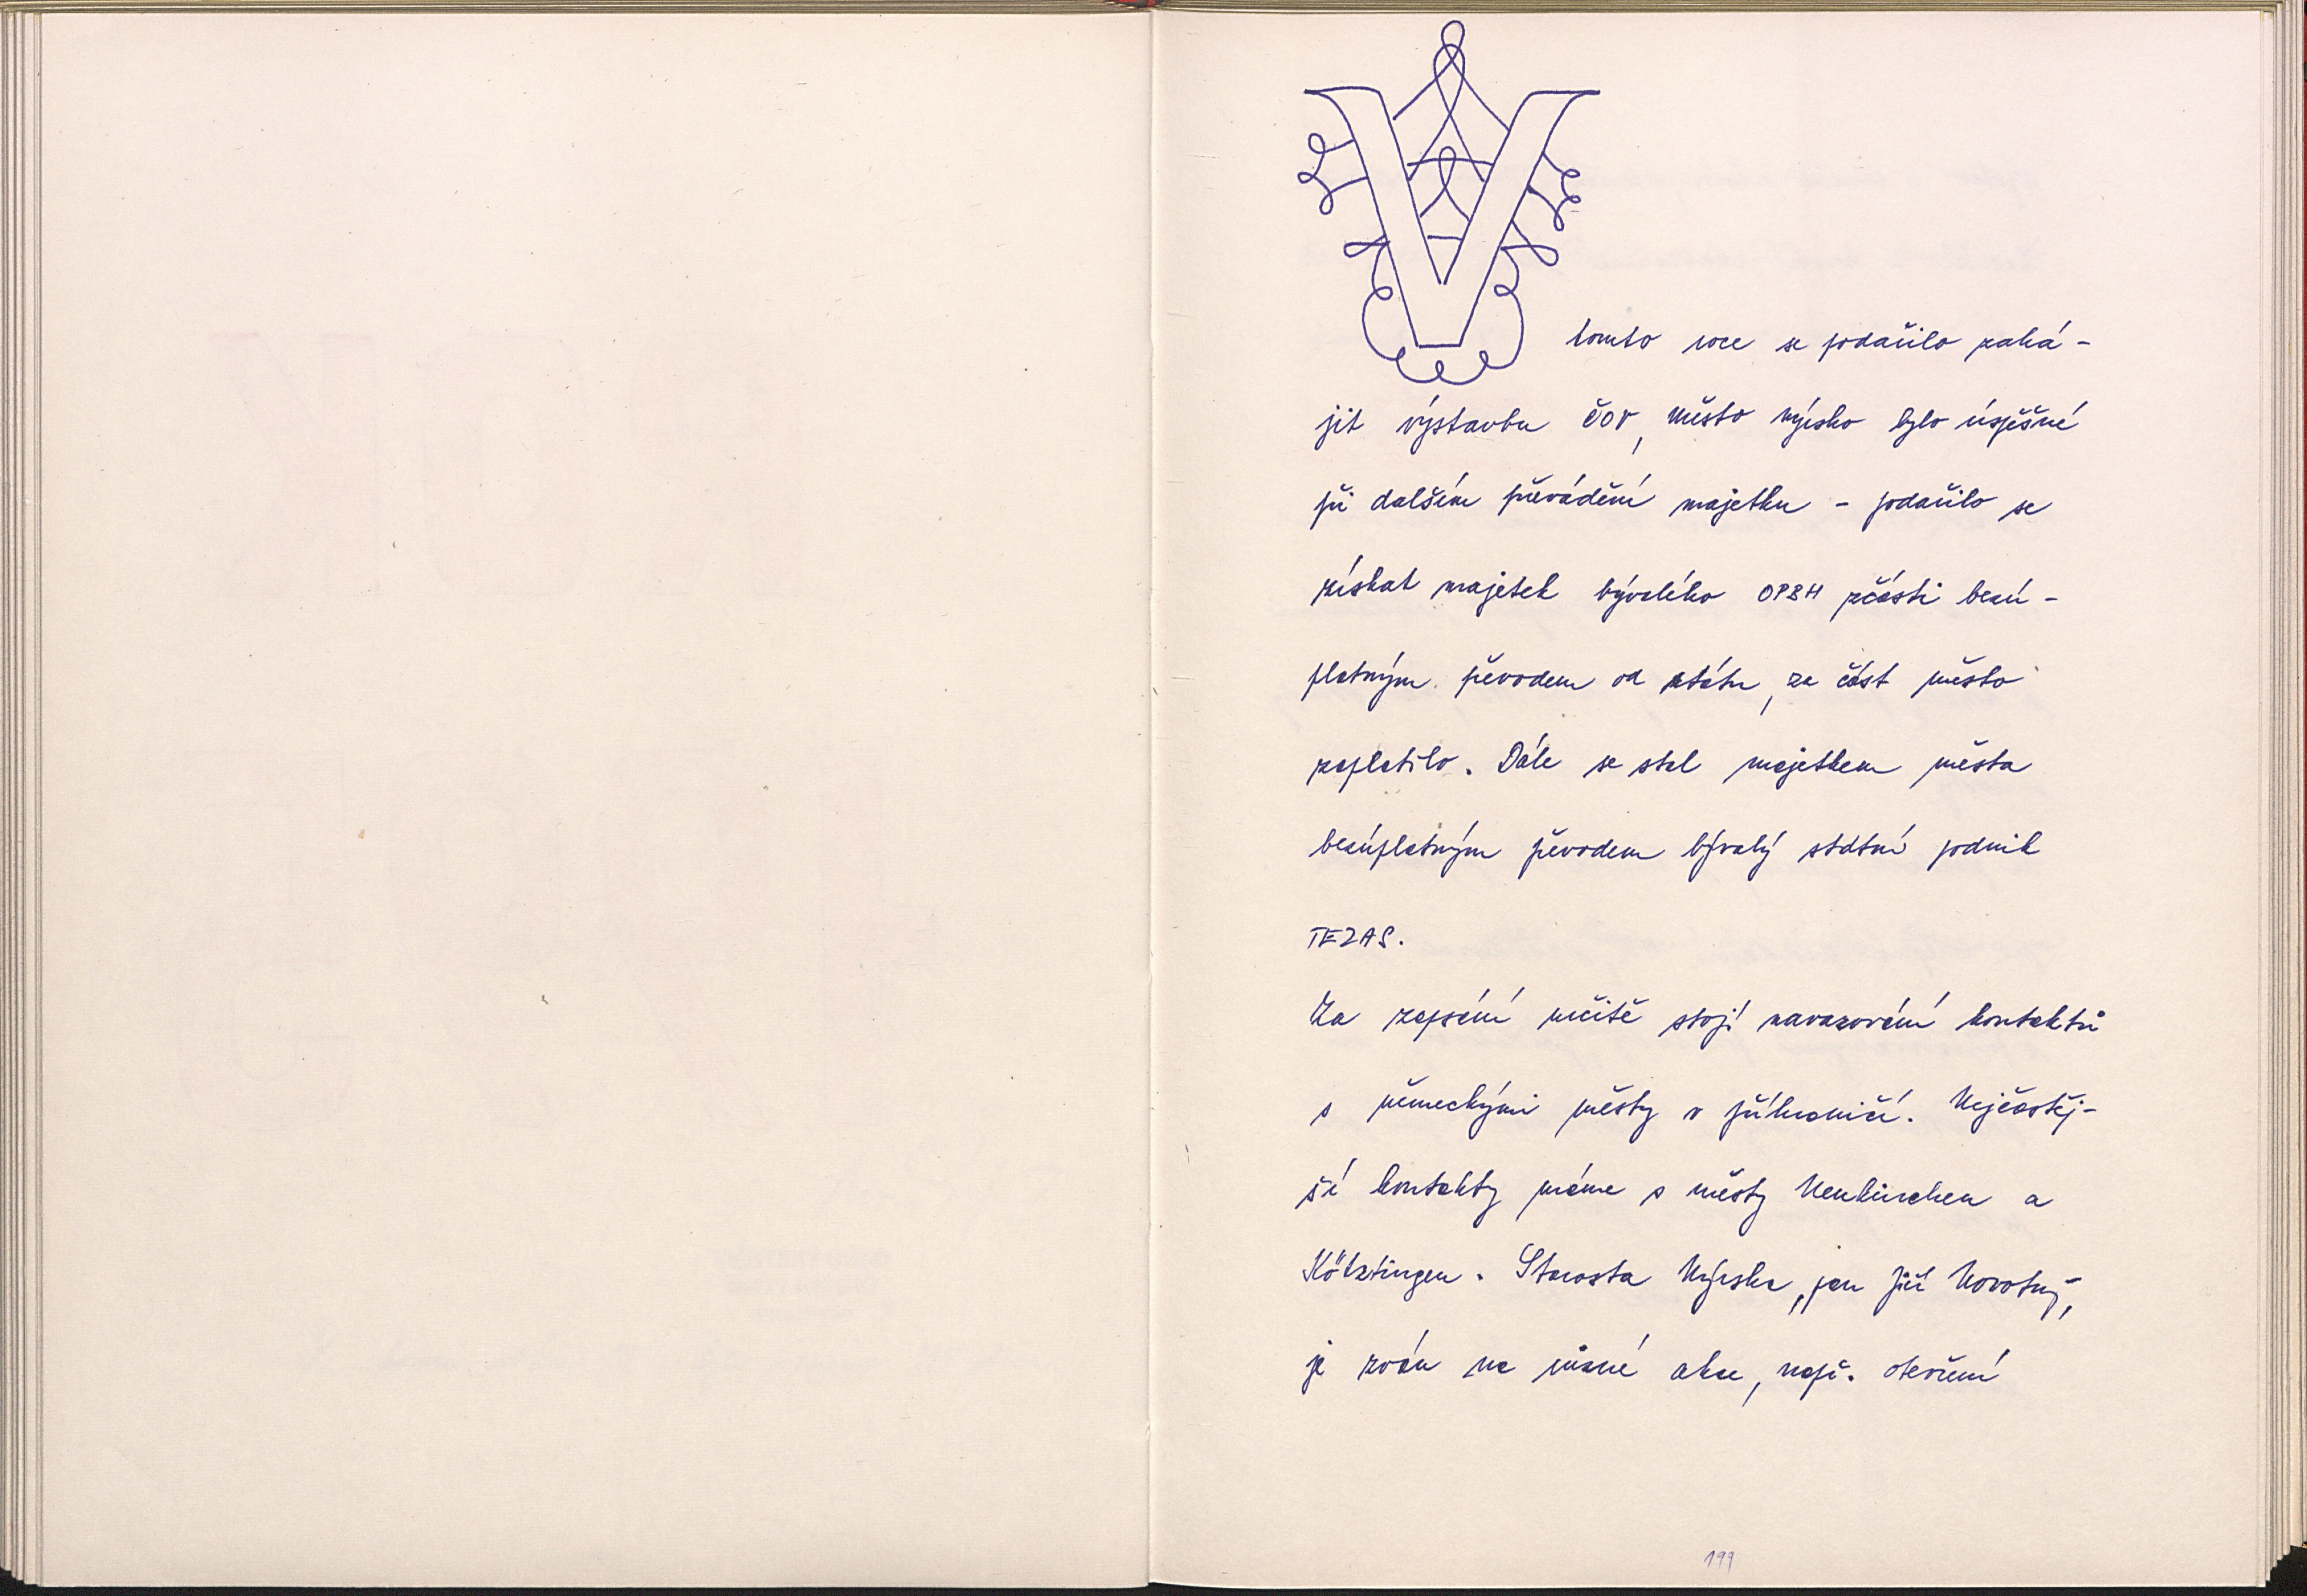 V tomto roce se podařilo zahá-
jit výstavbu ČOV, město Nýrsko bylo úspěšné
při dalším převádění majetku - podařilo se
získat majetek bývalého OPBH zčásti bezú-
platným převodem od státu, za část město
zaplatilo. Dále se stal majetkem města
bezúplatným převodem bývalý státní podnik
TEZAS.
Za zapsání určitě stojí navazování kontaktů
s německými městy v příhraničí. Nejčastěj-
ší kontakty máme s městy Neukirchen a
Kötzting­en. Starosta Nýrska, pan Jiří Novotný,
je zván na různé akce, např. otevření
199